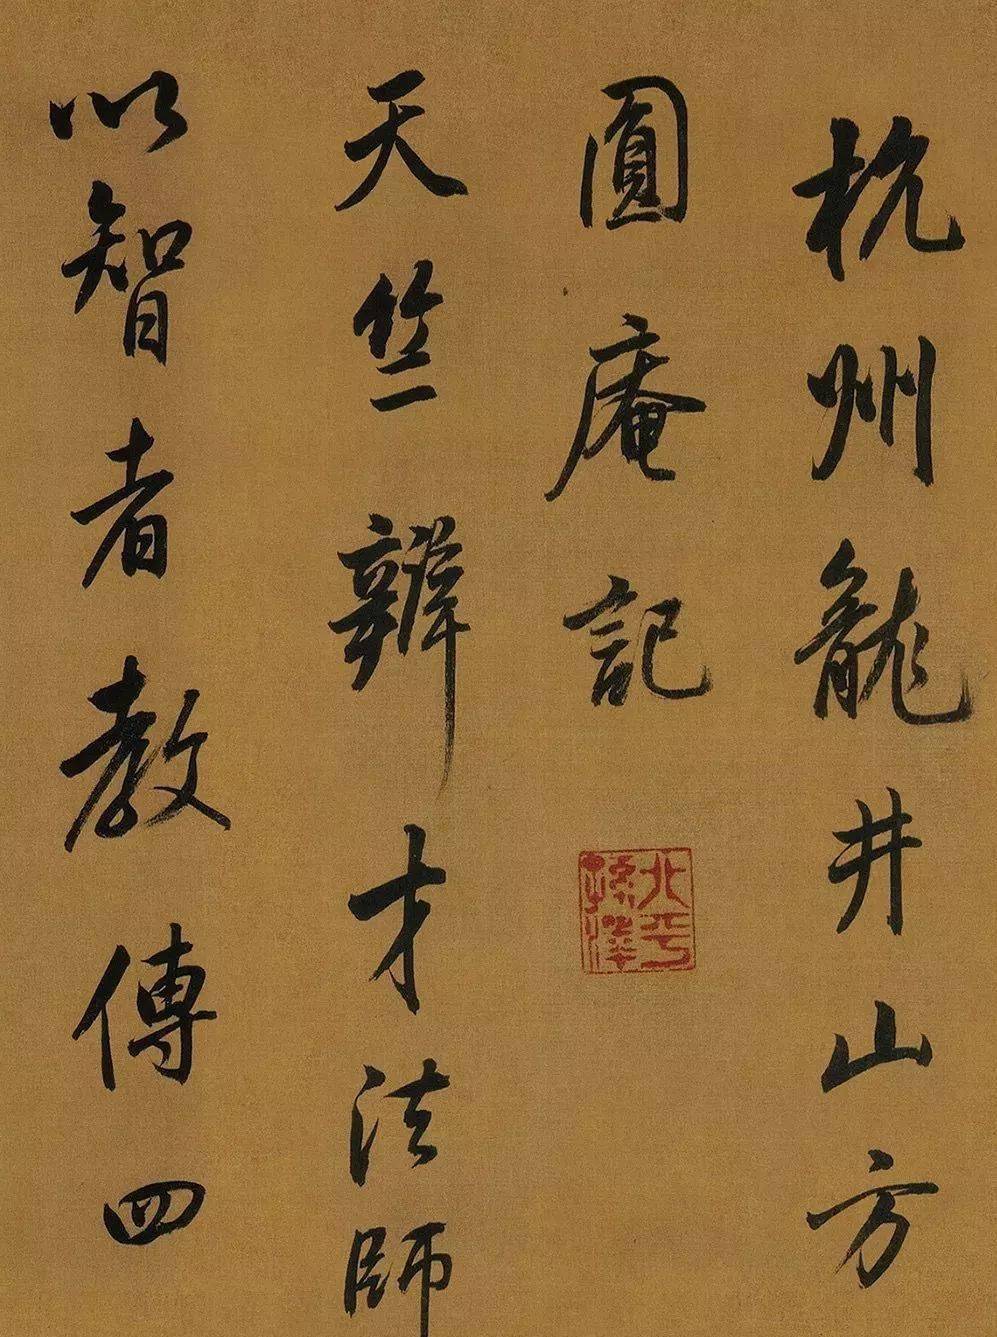 杭州龍井山方
圓庵記
北平
孫澤
天竺辯才法師
以智者教傳四